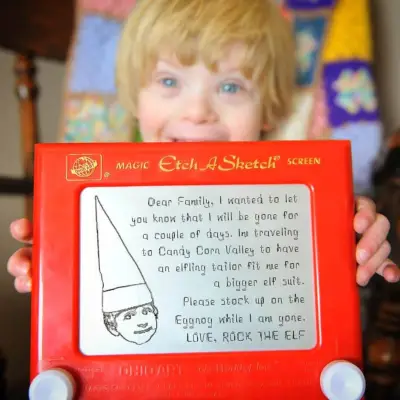 MAGIC Etch A Sketch® SCREEN
Dear Family, I wanted to let
you know that I will be gone for
a couple of days. Im traveling
to Candy Corn Valley to have
an elfling tailor fit me for
a bigger elf suit.
Please stock up on the
Eggnog while I am gone.
LOVE, ROCK THE ELF
OHIO ART